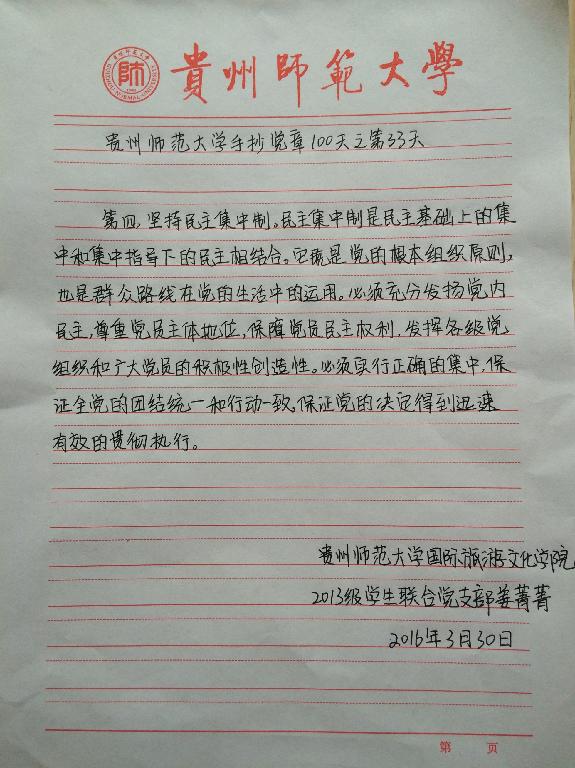 貴州師範大學
贵州师范大学手抄党章100天之第33天
第四,坚持民主集中制。民主集中制是民主基础上的集
中和集中指导下的民主相结合。它既是党的根本组织原则,
也是群众路线在党的生活中的运用。必须充分发扬党内
民主,尊重党员主体地位,保障党员民主权利,发挥各级党
组织和广大党员的积极性创造性。必须实行正确的集中,保
证全党的团结统一和行动一致,保证党的决定得到迅速
有效的贯彻执行。
贵州师范大学国际旅游文化学院
2013级学生联合党支部姜菁菁
2016年3月30日
第 页